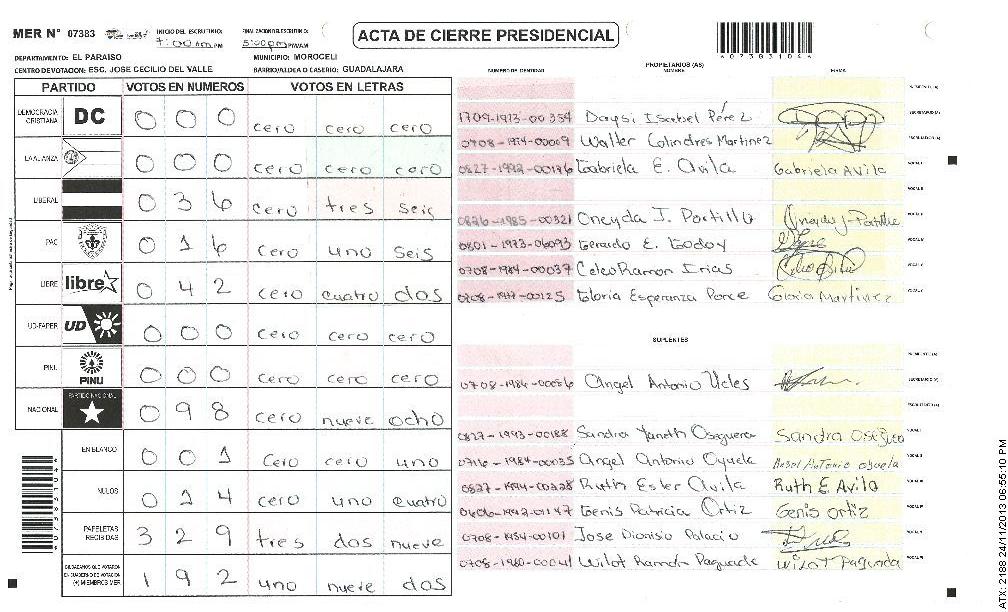 MER N° 07383
INICIO DEL ESCRUTINIO: 7:00 am PM
FINALIZACION DEL ESCRUTINIO: 5:00 pm PM/AM
ACTA DE CIERRE PRESIDENCIAL
DEPARTAMENTO: EL PARAISO
MUNICIPIO: MOROCELI
CENTRO DE VOTACION: ESC. JOSE CECILIO DEL VALLE
BARRIO/ALDEA O CASERIO: GUADALAJARA
PARTIDO VOTOS EN NUMEROS VOTOS EN LETRAS
DEMOCRACIA CRISTIANA DC 0 0 0 cero cero cero
LA ALIANZA 0 0 0 cero cero cero
LIBERAL 0 3 6 cero tres seis
PAC 0 1 6 cero uno seis
LIBRE libre 0 4 2 cero cuatro dos
UD-FAPER UD 0 0 0 cero cero cero
PINU PINU 0 0 0 cero cero cero
NACIONAL PARTIDO NACIONAL 0 9 8 cero nueve ocho
EN BLANCO 0 0 1 cero cero uno
NULOS 0 1 4 cero uno cuatro
PAPELETAS RECIBIDAS 3 2 9 tres dos nueve
CIUDADANOS QUE VOTARON EN CUADERNO DE VOTACION (+) MIEMBROS MER 1 9 2 uno nueve dos
PROPIETARIOS (AS)
NUMERO DE IDENTIDAD NOMBRE FIRMA
1709-1973-00354 Daysi Isabel Pérez
0708-1974-00009 Walter Colindres Martinez
0827-1992-00176 Gabriela E. Avila Gabriela Avila
0826-1985-00321 Oneyda J. Portillo Oneyda J. Portillo
0801-1973-06093 Gerardo E. Godoy
0708-1984-00037 Celeo Ramon Irias
0708-1977-00125 Gloria Esperanza Ponce Gloria Martinez
SUPLENTES
0708-1984-00056 Angel Antonio Ucles
0827-1993-00188 Sandra Yaneth Oseguera Sandra Oseguera
0716-1984-00035 Angel Antonio Oyuela Angel Antonio oyuela
0827-1994-00228 Ruth Ester Avila Ruth E Avila
0606-1992-01147 Genis Patricia Ortiz Genis Ortiz
0708-1954-00101 Jose Dionisio Palacio
0708-1960-00041 Wilot Ramón Paguada Wilot Paguada
*0738310 4*
ATX: 2188 24/11/2013 06:55:10 PM